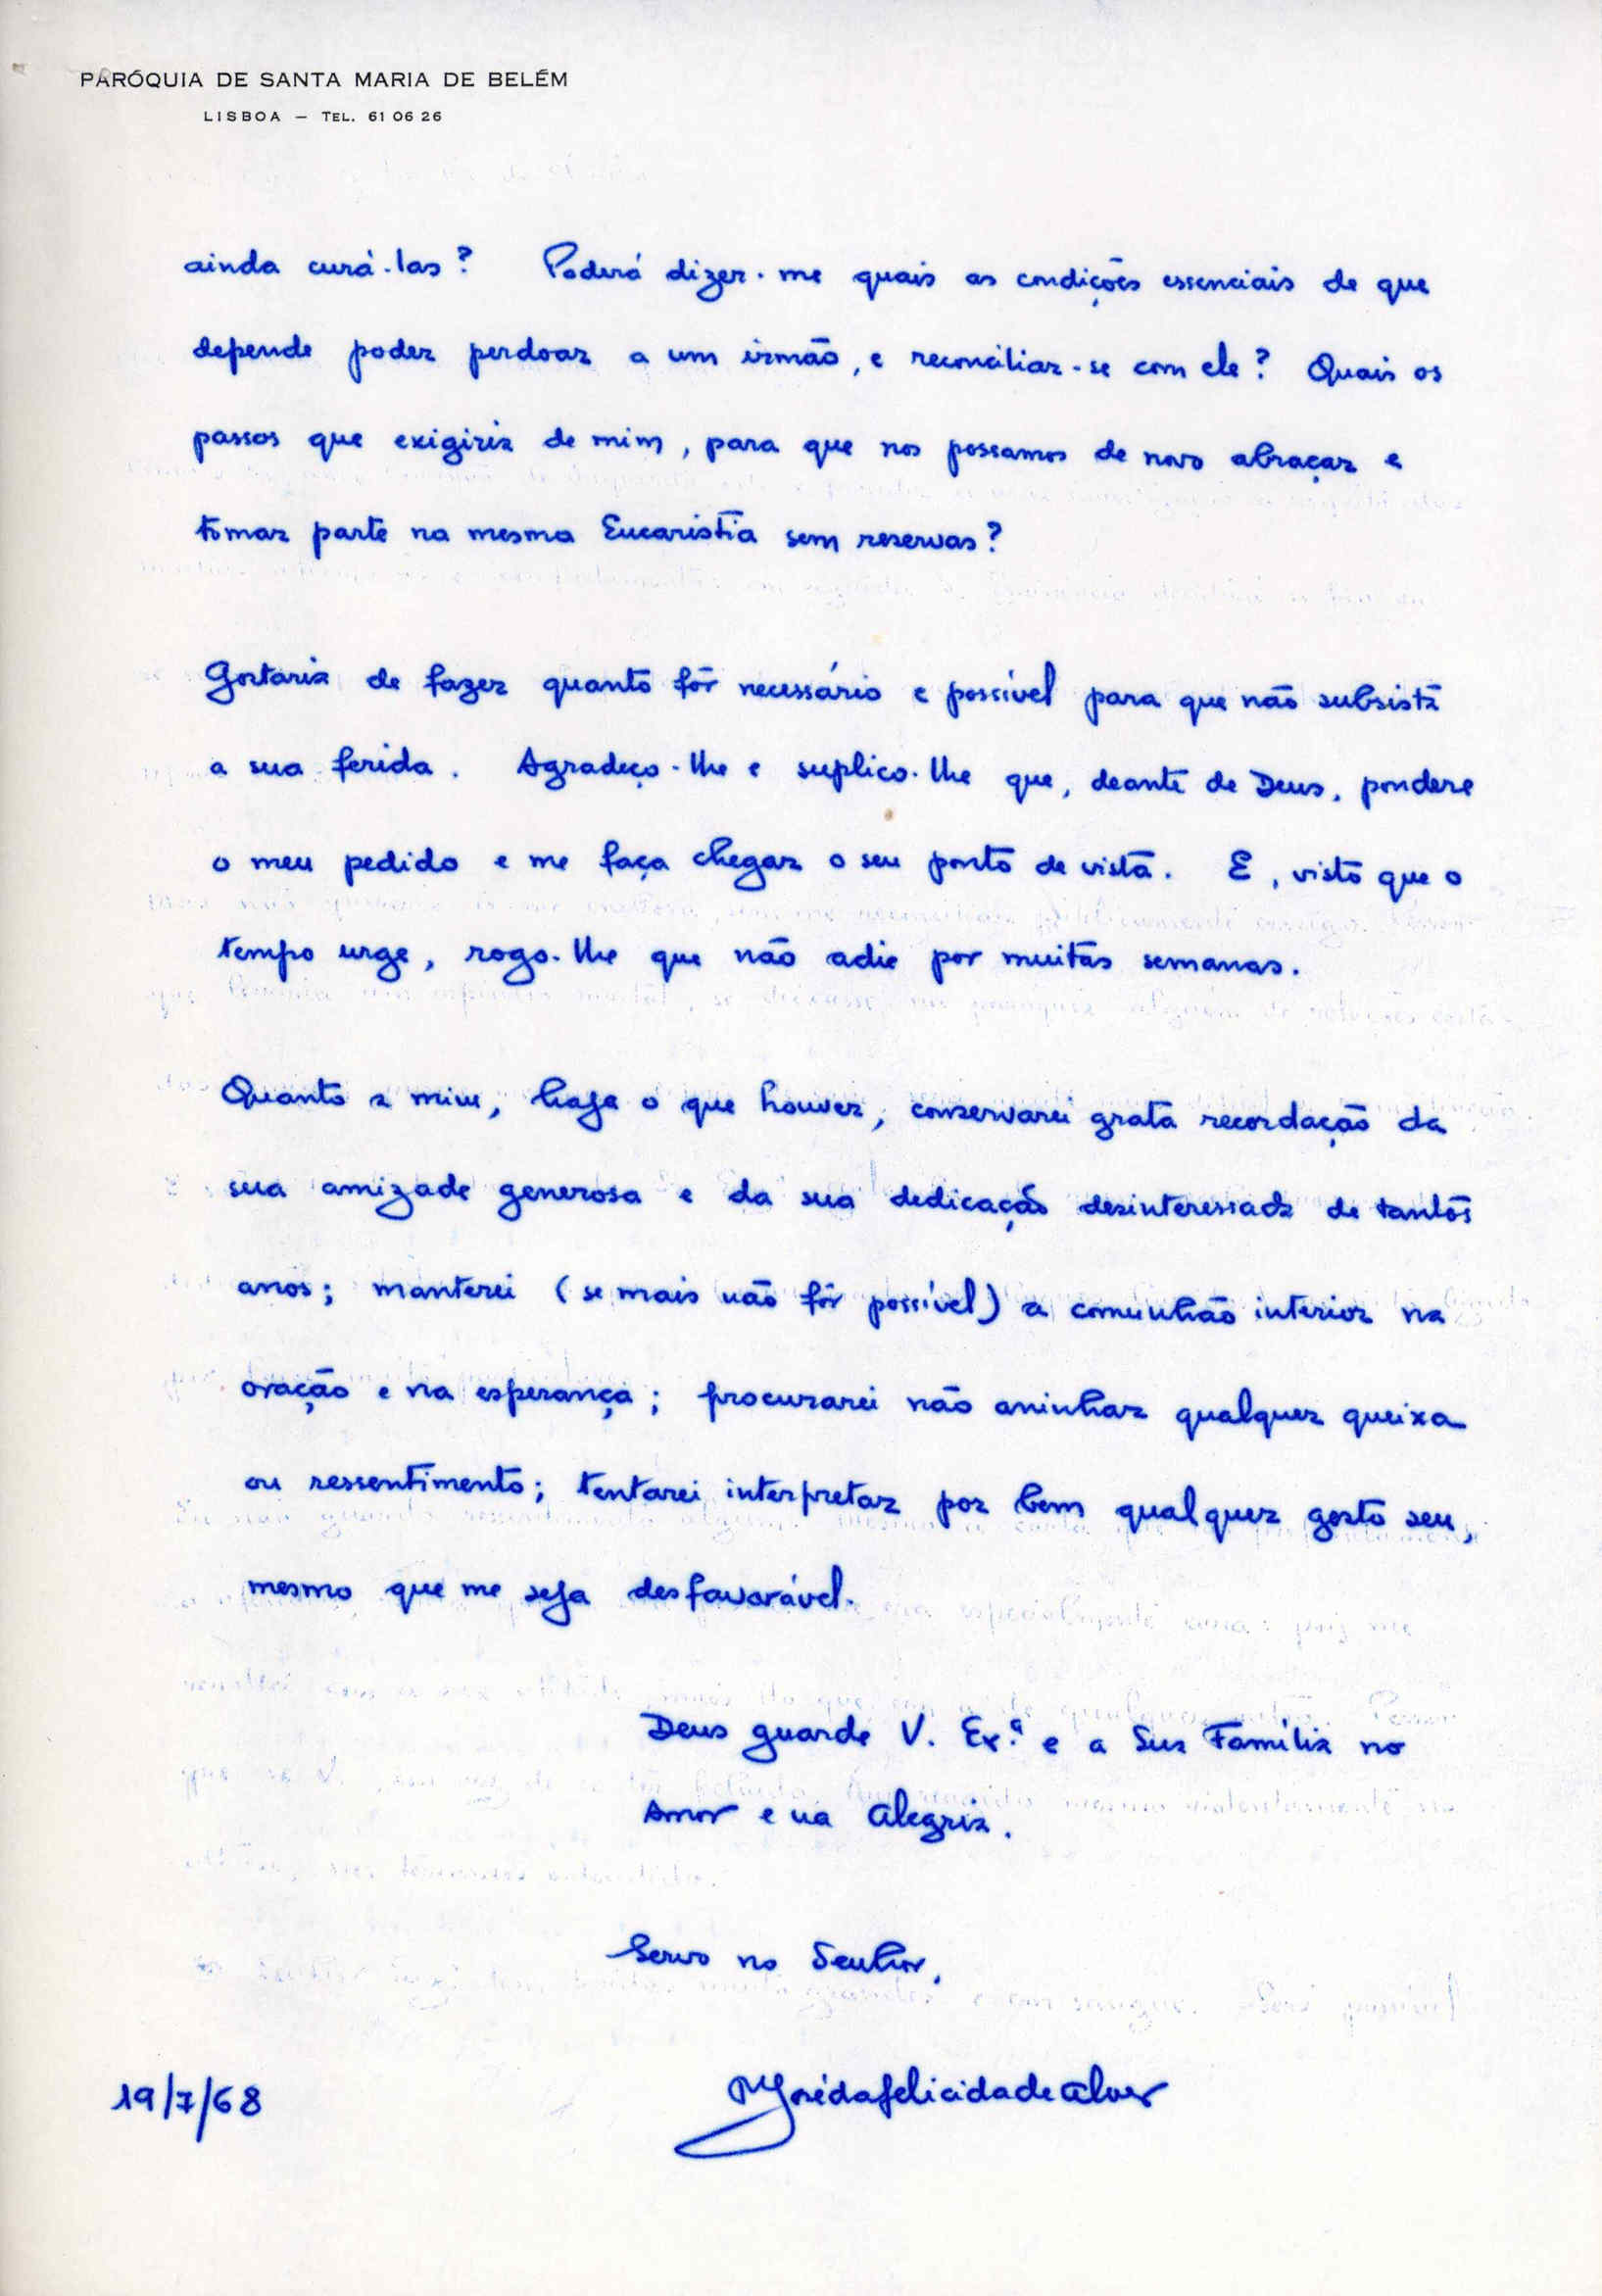 PARÓQUIA DE SANTA MARIA DE BELÉM
LISBOA — TEL. 61 06 26
ainda curá-las? Poderá dizer-me quais as condições essenciais de que
depende poder perdoar a um irmão, e reconciliar-se com ele? Quais os
passos que exigiria de mim, para que nos possamos de novo abraçar e
tomar parte na mesma Eucaristia sem reservas?
Gostaria de fazer quanto fôr necessário e possível para que não subsista
a sua ferida. Agradeço-lhe e suplico-lhe que, deante de Deus, pondere
o meu pedido e me faça chegar o seu ponto de vista. E, visto que o
tempo urge, rogo-lhe que não adie por muitas semanas.
Quanto a mim, haja o que houver, conservarei grata recordação da
sua amizade generosa e da sua dedicação desinteressada de tantos
anos; manterei (se mais não fôr possível) a comunhão interior na
oração e na esperança; procurarei não aninhar qualquer queixa
ou ressentimento; tentarei interpretar por bem qualquer gesto seu,
mesmo que me seja desfavorável.
Deus guarde V. Ex.ª e a Sua Família no
Amor e na Alegria.
Servo no Senhor,
19/7/68
P. José da Felicidade Alves